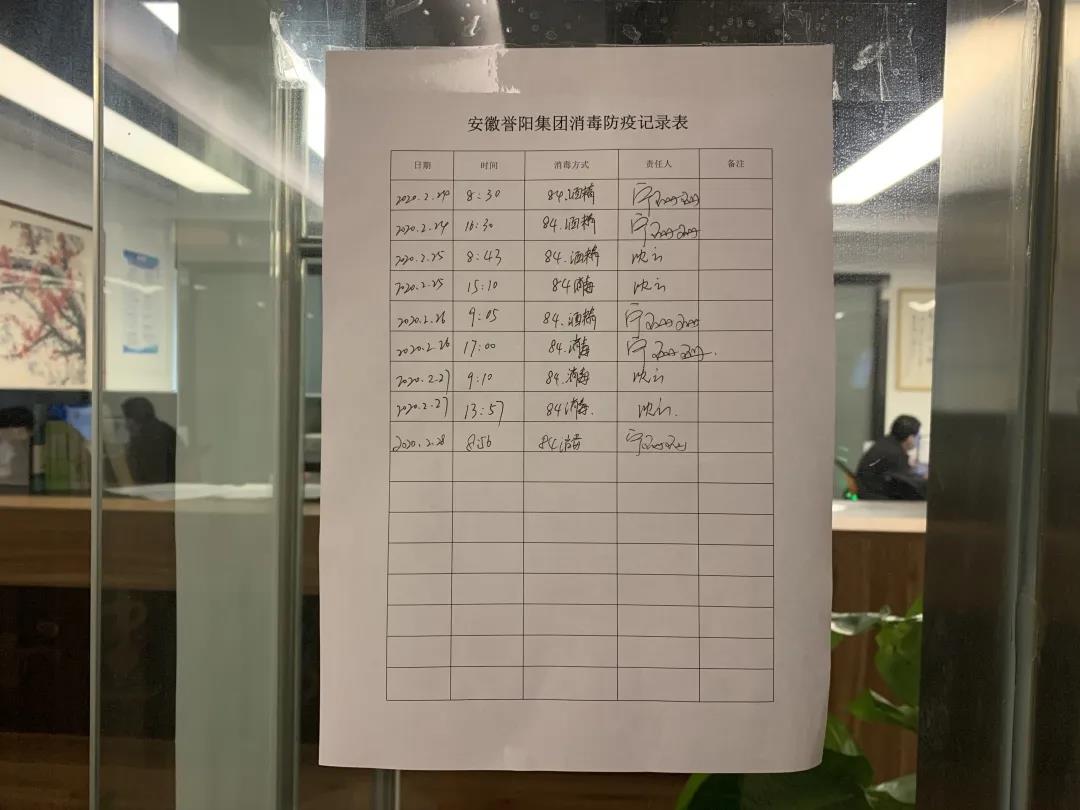 安徽誉阳集团消毒防疫记录表
日期 时间 消毒方式 责任人 备注
2020.2.24 8:30 84.酒精 宁
2020.2.24 16:30 84.酒精 宁
2020.2.25 8:43 84.酒精
2020.2.25 15:10 84消毒
2020.2.26 9:05 84.酒精 宁
2020.2.26 17:00 84.消毒 宁
2020.2.27 9:10 84.消毒
2020.2.27 13:57 84消毒.
2020.2.28 8:56 84消毒 宁